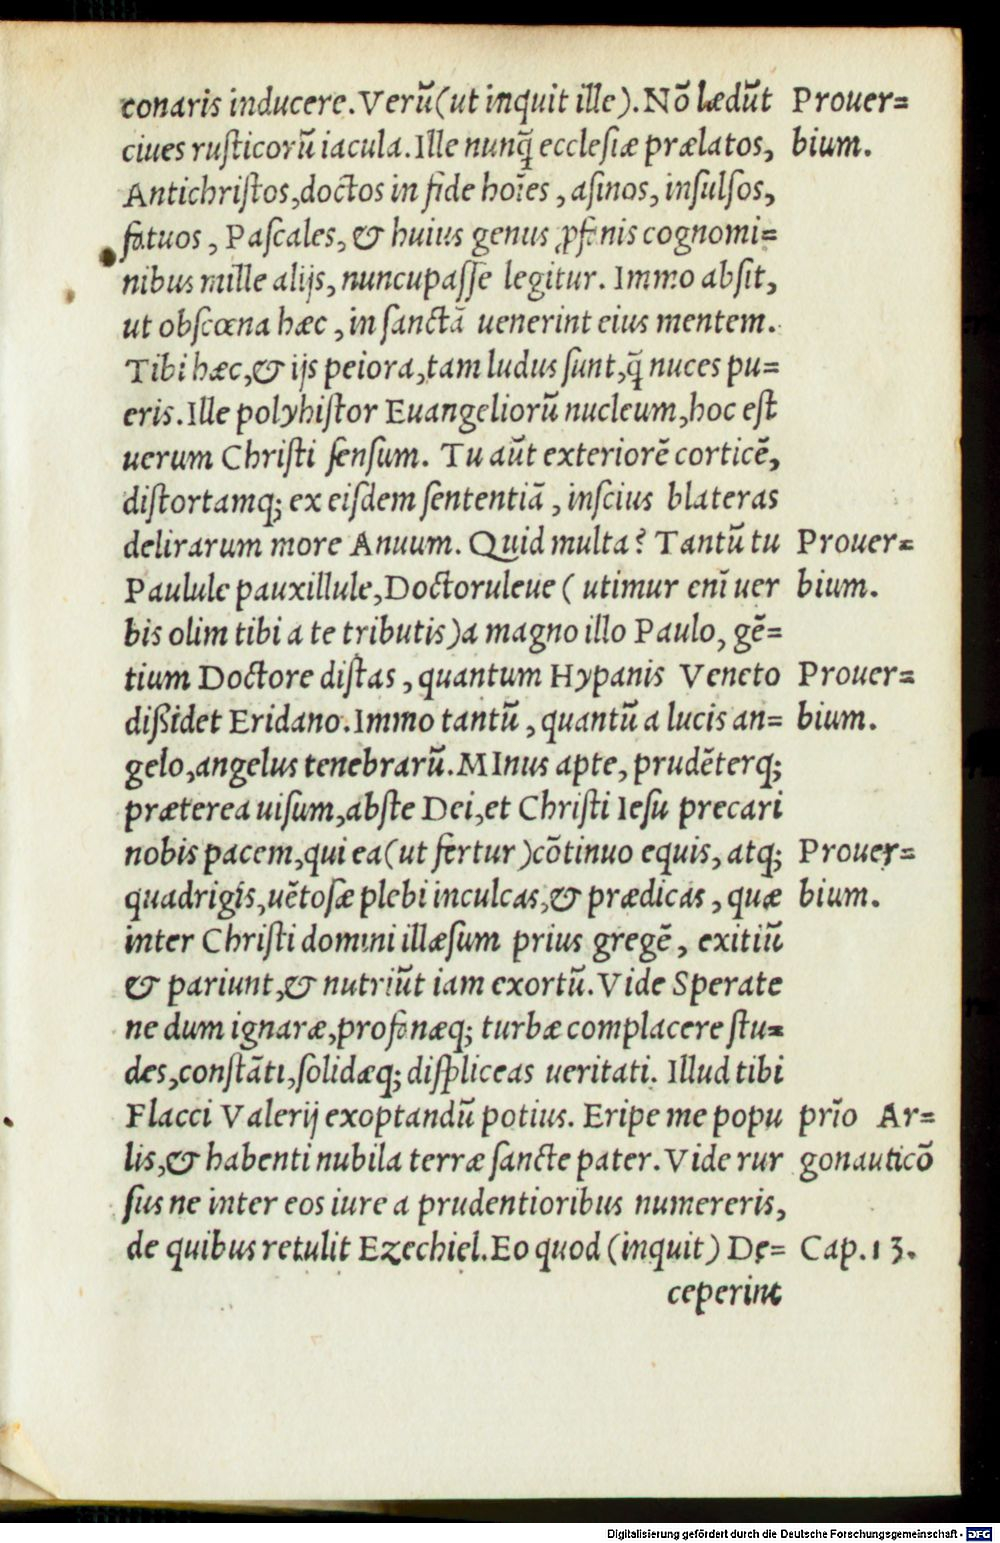 conaris inducere. Verũ(ut inquit ille). Nõ lædũt Prouer=
ciues rusticorũ iacula. Ille nunq̃ ecclesiæ prælatos, bium.
Antichristos, doctos in fide hoĩes, asinos, insulsos,
fatuos, Pascales, & huius genus ꝓfanis cognomi=
nibus mille alijs, nuncupasse legitur. Immo absit,
ut obscœna hæc, in sanctã uenerint eius mentem.
Tibi hæc, & ijs peiora, tam ludus sunt, q̃ nuces pu=
eris. Ille polyhistor Euangeliorũ nucleum, hoc est
uerum Christi sensum. Tu aũt exteriorẽ corticẽ,
distortamq; ex eisdem sententiã, inscius blateras
delirarum more Anuum. Quid multa? Tantũ tu Prouer=
Paulule pauxillule, Doctoruleue ( utimur enĩ uer bium.
bis olim tibi a te tributis) a magno illo Paulo, gẽ=
tium Doctore distas, quantum Hypanis Veneto Prouer=
dißidet Eridano. Immo tantũ, quantũ a lucis an= bium.
gelo, angelus tenebrarũ. MInus apte, prudẽterq;
præterea uisum, abste Dei, et Christi Iesu precari
nobis pacem, qui ea(ut fertur) cõtinuo equis, atq; Prouer=
quadrigis, uẽtosæ plebi inculcas, & prædicas, quæ bium.
inter Christi domini illæsum prius gregẽ, exitiũ
& pariunt, & nutriũt iam exortũ. Vide Sperate
ne dum ignaræ, profanæq; turbæ complacere stu=
des, constãti, solidæq; displiceas ueritati. Illud tibi
Flacci Valerij exoptandũ potius. Eripe me popu prĩo Ar=
lis, & habenti nubila terræ sancte pater. Vide rur gonauticõ
sus ne inter eos iure a prudentioribus numereris,
de quibus retulit Ezechiel. Eo quod (inquit) De= Cap. 13.
ceperint
Digitalisierung gefördert durch die Deutsche Forschungsgemeinschaft - DFG